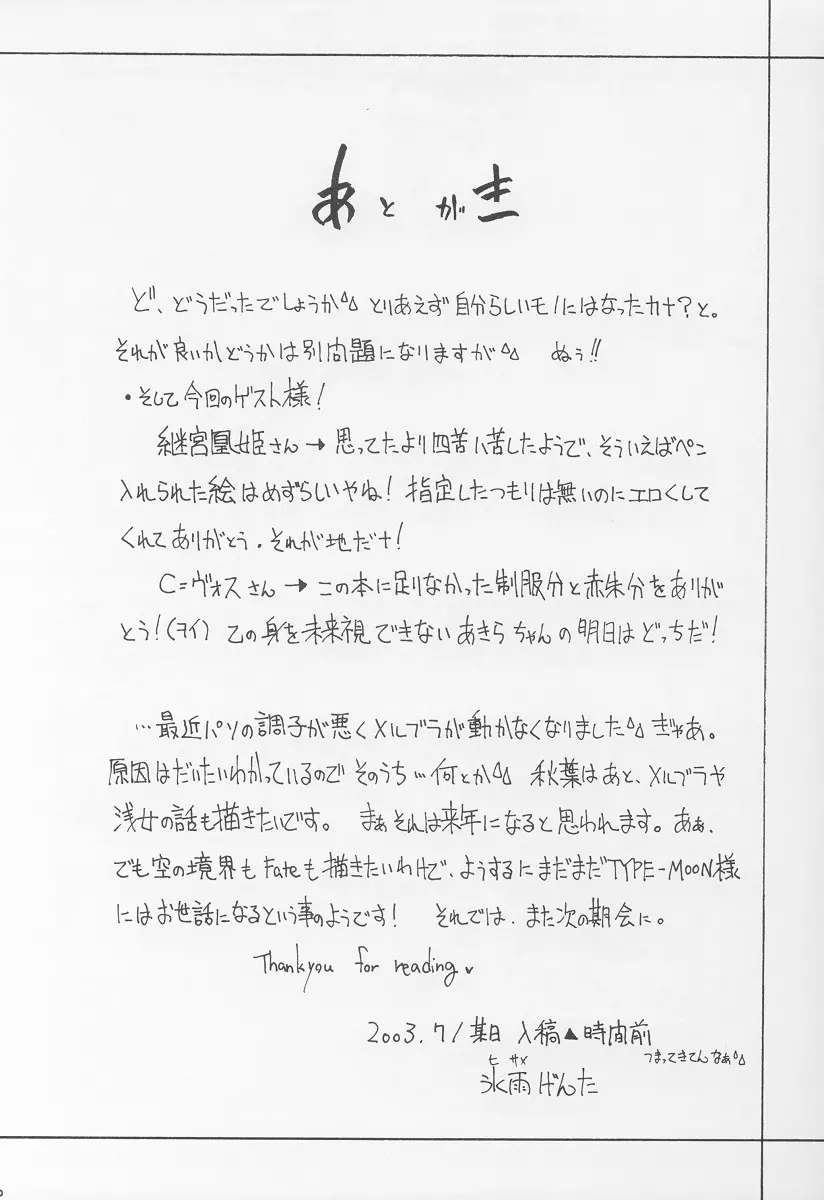 あとがき
ど、どうだったでしょうか^^; とりあえず自分らしいモノにはなったカナ?と。
それが良いかどうかは別問題になりますが^^; ぬぅ!!
・そして今回のゲスト様!
継宮凰姫さん→思ってたより四苦八苦したようで、そういえばペン
入れられた絵はめずらしいやね!指定したつもりは無いのにエロくして
くれてありがとう.それが地だナ!
C=ヴォスさん→この本に足りなかった制服分と赤朱分をありが
とう!(ヲイ) 乙の身を未来視できないあきらちゃんの明日はどっちだ!
…最近パソの調子が悪くメルブラが動かなくなりました^^; ぎゃあ。
原因はだいたいわかっているのでそのうち…何とか^^; 秋葉はあと、メルブラや
浅女の話も描きたいです。まぁそれは来年になると思われます。あぁ、
でも空の境界もFateも描きたいわけで、ようするにまだまだTYPE-MOON様
にはお世話になるという事のようです! それでは、また次の期会に。
Thankyou for reading♥
2003.7/某日 入稿▲時間前
つまってきてんなぁ^^;
ヒサメ
氷雨げんた